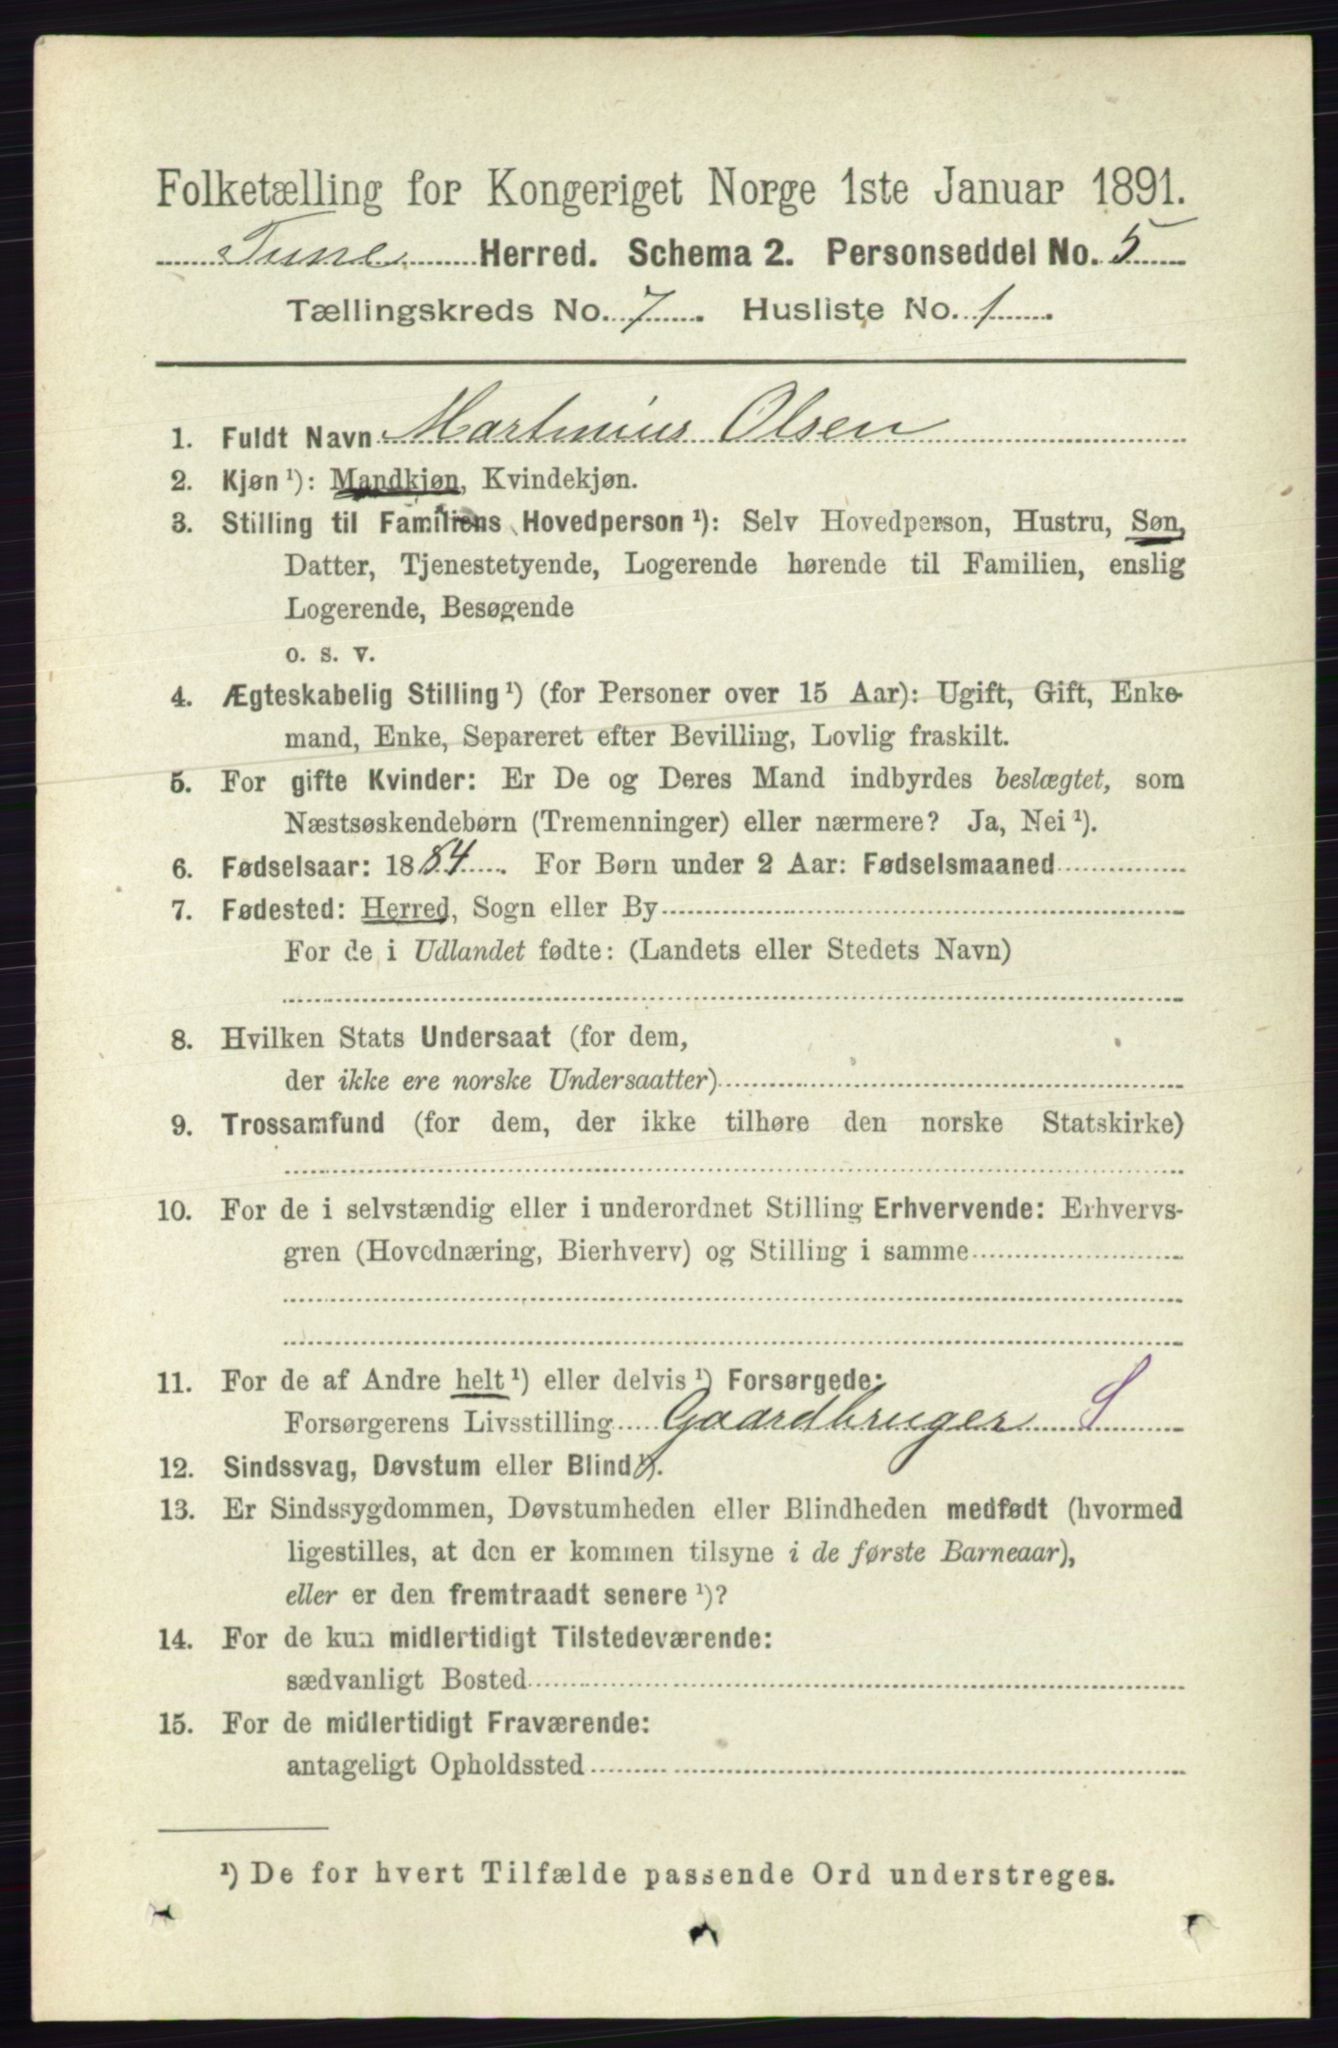 Folketælling for Kongeriget Norge 1ste Januar 1891.
Tune Herred. Schema 2. Personseddel No. 5
Tællingskreds No. 7. Husliste No. 1.
1. Fuldt Navn Martinius Olsen
2. Kjøn¹): Mandkjøn, Kvindekjøn.
3. Stilling til Familiens Hovedperson¹): Selv Hovedperson, Hustru, Søn,
Datter, Tjenestetyende, Logerende hørende til Familien, enslig
Logerende, Besøgende
o. s. v.
4. Ægteskabelig Stilling¹) (for Personer over 15 Aar): Ugift, Gift, Enke-
mand, Enke, Separeret efter Bevilling, Lovlig fraskilt.
5. For gifte Kvinder: Er De og Deres Mand indbyrdes beslægtet, som
Næstsøskendebørn (Tremenninger) eller nærmere? Ja, Nei¹).
6. Fødselsaar: 1884. For Børn under 2 Aar: Fødselsmaaned
7. Fødested: Herred, Sogn eller By
For de i Udlandet fødte: (Landets eller Stedets Navn)
8. Hvilken Stats Undersaat (for dem,
der ikke ere norske Undersaatter)
9. Trossamfund (for dem, der ikke tilhøre den norske Statskirke)
10. For de i selvstændig eller i underordnet Stilling Erhvervende: Erhvervs-
gren (Hovednæring, Bierhverv) og Stilling i samme
11. For de af Andre helt¹) eller delvis¹) Forsørgede:
Forsørgerens Livsstilling Gaardbruger S
12. Sindssvag, Døvstum eller Blind¹).
13. Er Sindssygdommen, Døvstumheden eller Blindheden medfødt (hvormed
ligestilles, at den er kommen tilsyne i de første Barneaar),
eller er den fremtraadt senere¹)?
14. For de kun midlertidigt Tilstedeværende:
sædvanligt Bosted
15. For de midlertidigt Fraværende:
antageligt Opholdssted
¹) De for hvert Tilfælde passende Ord understreges.